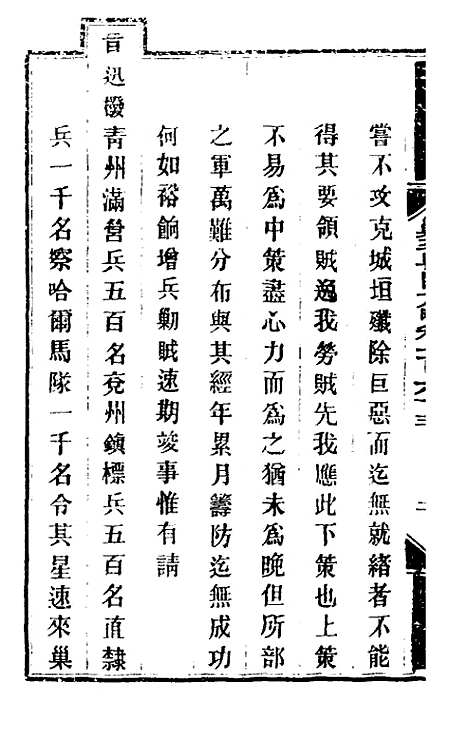 嘗不攻克城垣殲除巨惡而迄無就緒者不能
得其要領賊逸我勞賊先我應此下策也上策
不易為中策盡心力而為之猶未為晚但所部
之軍萬難分布與其經年累月籌防迄無成功
何如裕餉增兵勦賊速期竣事惟有請
旨迅撥青州滿營兵五百名兗州鎮標兵五百名直隸
兵一千名察哈爾馬隊一千名令其星速來巢